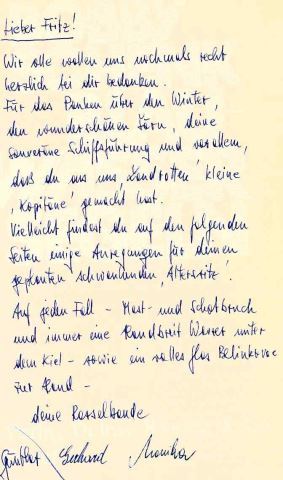 Lieber Fritz!
Wir alle wollen uns nochmals recht
herzlich bei dir bedanken.
Für das Planken über den Winter,
den wunderschönen Törn, deine
souveräne Schiffsführung und vor allem,
daß du aus uns „Landratten" kleine
„Kapitäne" gemacht hast.
Vielleicht findest du auf den folgenden
Seiten einige Anregungen für deinen
geplanten schwimmenden „Alterssitz".
Auf jeden Fall - Mast- und Schotbruch
und immer eine Handbreit Wasser unter
dem Kiel - sowie ein volles Glas
zur Hand -
deine Rasselbande
Günther Gerhard Monika